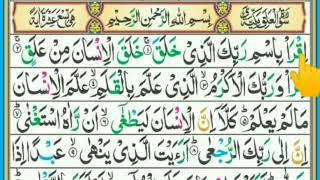 سُوْرَةُ الْعَلَقِ مَكِّيَّةٌ بِسْمِ اللّٰهِ الرَّحْمٰنِ الرَّحِيْمِ
اِقْرَاْ بِاسْمِ رَبِّكَ الَّذِىْ خَلَقَ ۝١ خَلَقَ الْاِنْسَانَ مِنْ عَلَقٍ ۝٢
اِقْرَاْ وَرَبُّكَ الْاَكْرَمُ ۝٣ الَّذِىْ عَلَّمَ بِالْقَلَمِ ۝٤ عَلَّمَ الْاِنْسَانَ
مَا لَمْ يَعْلَمْ ۝٥ كَلَّا اِنَّ الْاِنْسَانَ لَيَطْغٰٓى ۝٦ اَنْ رَّاٰهُ اسْتَغْنٰى ۝٧
اِنَّ اِلٰى رَبِّكَ الرُّجْعٰى ۝٨ اَرَءَيْتَ الَّذِىْ يَنْهٰى ۝٩ عَبْدًا اِذَا